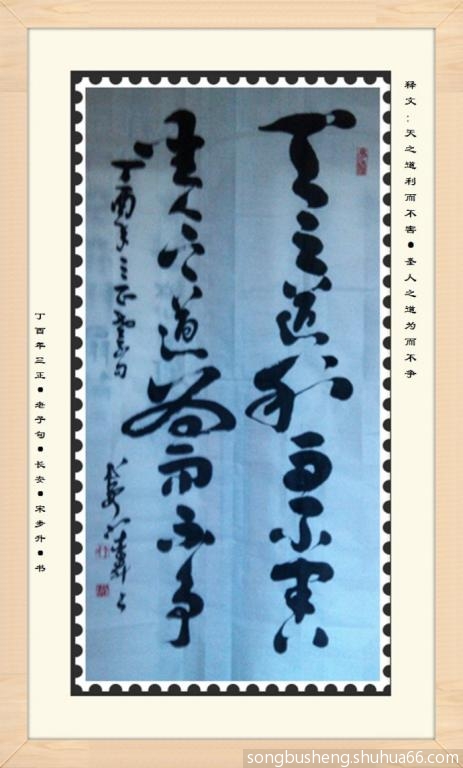 释文：天之道利而不害●圣人之道为而不争
天之道利而不害
圣人之道为而不争
丁酉年三正老子句
长安宋步升书
丁酉年三正●老子句●长安●宋步升●书
songbusheng.shuhua66.com